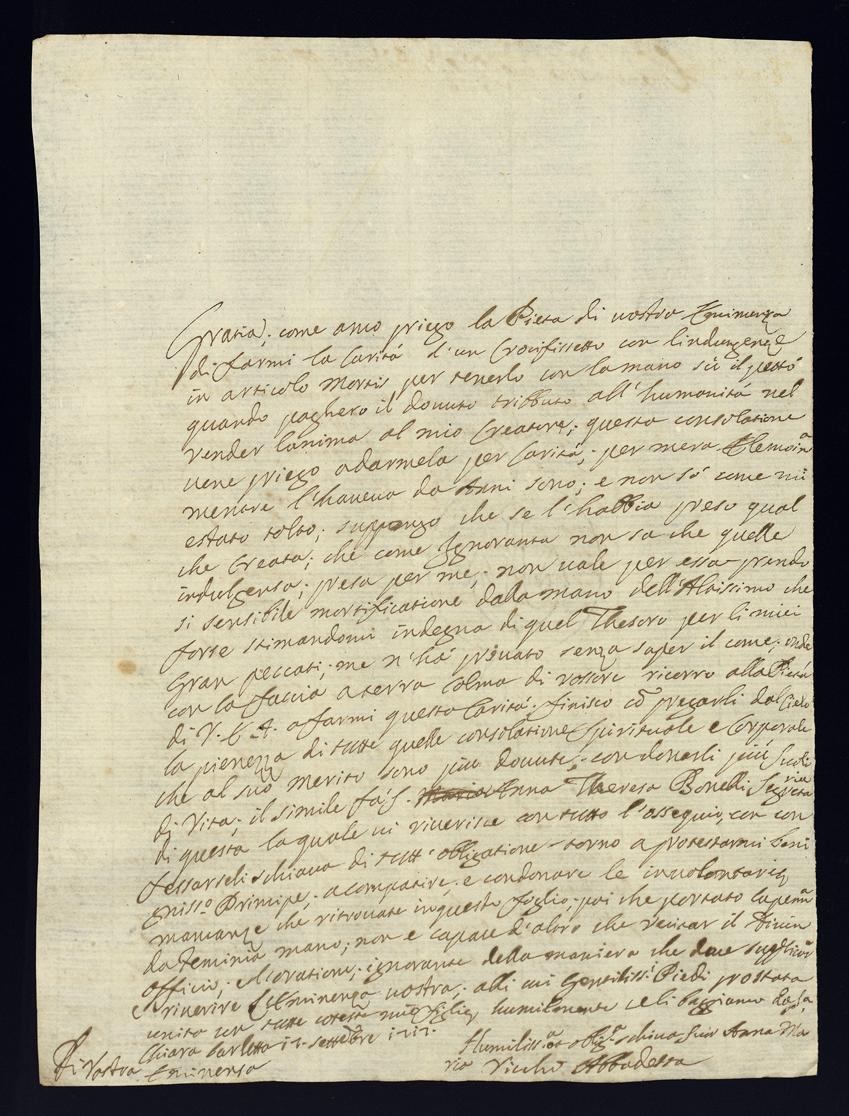 Gratia; come anco priego la Pieta di vostra Eminenza
di farmi la Carità d'un Crocifissetto con l'indulgenze
in articolo Mortis per tenerlo con la mano sù il petto
quando pagherò il dovuto tributto all'humanità nel
render lanima al mio Creatore; questa consolatione
vene priego adarmela per Carità; per mera Elemosina
mentre l'haveva da Anni sono; e non sò come mi
estato tolto; suppongo che se l'habbia preso qual
che Creata; che come Ignoranta non sa che quelle
indulgenza; presa per me; non vale per essa prendo
si sensibile mortificatione dalla mano dell'Altissimo che
forse stimandomi indegna di quel Thesoro per li miei
Gran peccati; me n'hà privato senza saper il come; onde
con la faccia a terra Colma di rossore ricorro alla Pietà
di V. E. A. a farmi questa Carità. finisco cō pregarli dal Cielo
la pienezza di tutte quelle consolatione Spirituale e Corporale
che al suo merito sono piu dovute; con donarli più Secoli
di Vita; il simile fà S. Anna Theresa Bonelli Segretaria
di questa la quale vi riverisce con tutto l'ossequio, con con
fessarseli schiava di tutt'obligatione torno a protestarmi beni
gnisso Principe; a compatire; e condonare le involontarie
mancanze che ritrovate in questo foglio; poi che portato la penna
da feminia mano; non e capace d'altro che recitar il Divin
officio; e l'oratione; ignorante della maniera che deve supplicar
e riverire l'Eminenza vostra; alli cui Gentilissi Piedi prostata
unita con tutte coteste mie figlie humilmente celi baggiamo
Chiara Barletta 17 settēbre
Di Vostra Eminenza
Humilissa et obligma schiava Suor Anna Ma
ria Abbadessa